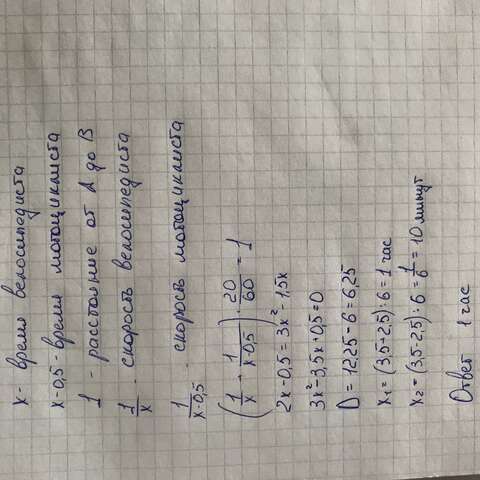 x - время велосипедиста
x-0,5 - время мотоциклиста
1 - расстояние от A до B
1/x - скорость велосипедиста
1/(x-0,5) - скорость мотоциклиста
(1/x + 1/(x-0,5)) · 20/60 = 1
2x - 0,5 = 3x² - 1,5x
3x² - 3,5x + 0,5 = 0
D = 12,25 - 6 = 6,25
x₁ = (3,5+2,5):6 = 1 час
x₂ = (3,5-2,5):6 = 1/6 = 10 минут
Ответ 1 час